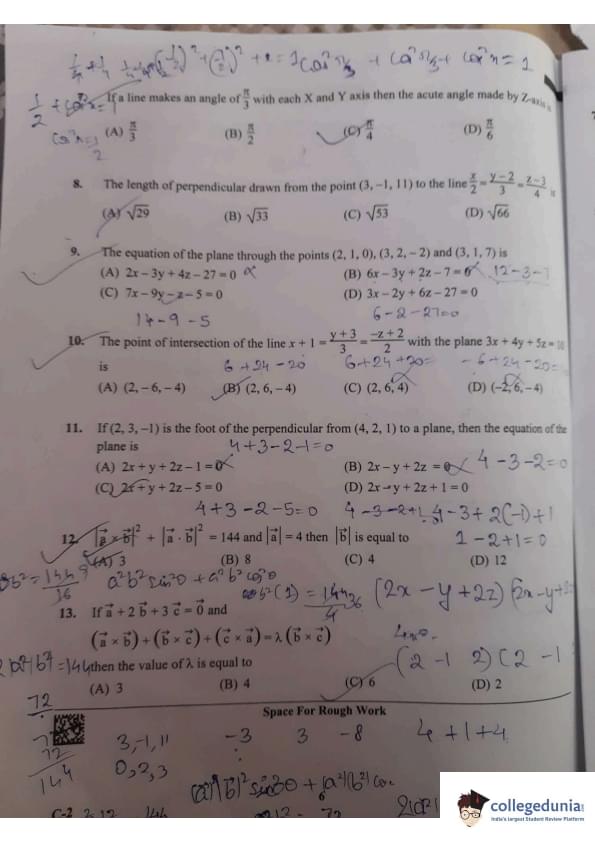 If a line makes an angle of π/3 with each X and Y axis then the acute angle made by Z-axis is
(A) π/3 (B) π/2 (C) π/4 (D) π/6
8. The length of perpendicular drawn from the point (3, −1, 11) to the line x/2 = y−2/3 = z−3/4 is
(A) √29 (B) √33 (C) √53 (D) √66
9. The equation of the plane through the points (2, 1, 0), (3, 2, −2) and (3, 1, 7) is
(A) 2x − 3y + 4z − 27 = 0 (B) 6x − 3y + 2z − 7 = 0 12 − 3 − 7
(C) 7x − 9y − z − 5 = 0 (D) 3x − 2y + 6z − 27 = 0
14 − 9 − 5 6 − 2 − 27 = 0
10. The point of intersection of the line x + 1 = y + 3/3 = −z + 2/2 with the plane 3x + 4y + 5z = 10
is 6 + 24 − 20 6 + 24 + 20 = − 6 + 24 − 20 =
(A) (2, −6, −4) (B) (2, 6, −4) (C) (2, 6, 4) (D) (−2, 6, −4)
11. If (2, 3, −1) is the foot of the perpendicular from (4, 2, 1) to a plane, then the equation of the
plane is 4 + 3 − 2 − 1 = 0
(A) 2x + y + 2z − 1 = 0 (B) 2x − y + 2z = 0 4 − 3 − 2 = 0
(C) 2x + y + 2z − 5 = 0 (D) 2x − y + 2z + 1 = 0
4 + 3 − 2 − 5 = 0 4 − 3 + 2(−1) + 1
12. |a⃗ × b⃗|² + |a⃗ · b⃗|² = 144 and |a⃗| = 4 then |b⃗| is equal to 1 − 2 + 1 = 0
(A) 3 (B) 8 (C) 4 (D) 12
a²b² sin²θ + a²b² cos²θ
13. If a⃗ + 2b⃗ + 3c⃗ = 0⃗ and (2x − y + 2z)
(a⃗ × b⃗) + (b⃗ × c⃗) + (c⃗ × a⃗) = λ(b⃗ × c⃗)
then the value of λ is equal to (2 −1 2) (2 −1
(A) 3 (B) 4 (C) 6 (D) 2
72
Space For Rough Work
72
144
3, −1, 11 −3 3 −8 4 + 1 + 4
0, 2, 3
C-2
collegedunia
India's largest Student Review Platform